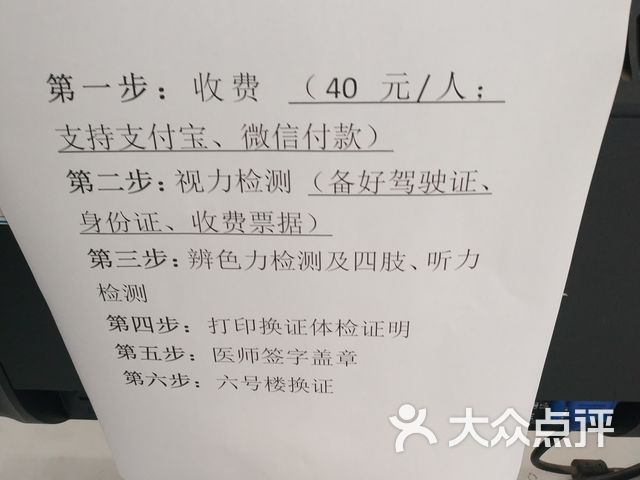 第一步：收费 （40 元/人；
支持支付宝、微信付款）
第二步：视力检测（备好驾驶证、
身份证、收费票据）
第三步：辨色力检测及四肢、听力
检测
第四步：打印换证体检证明
第五步：医师签字盖章
第六步：六号楼换证
大众点评